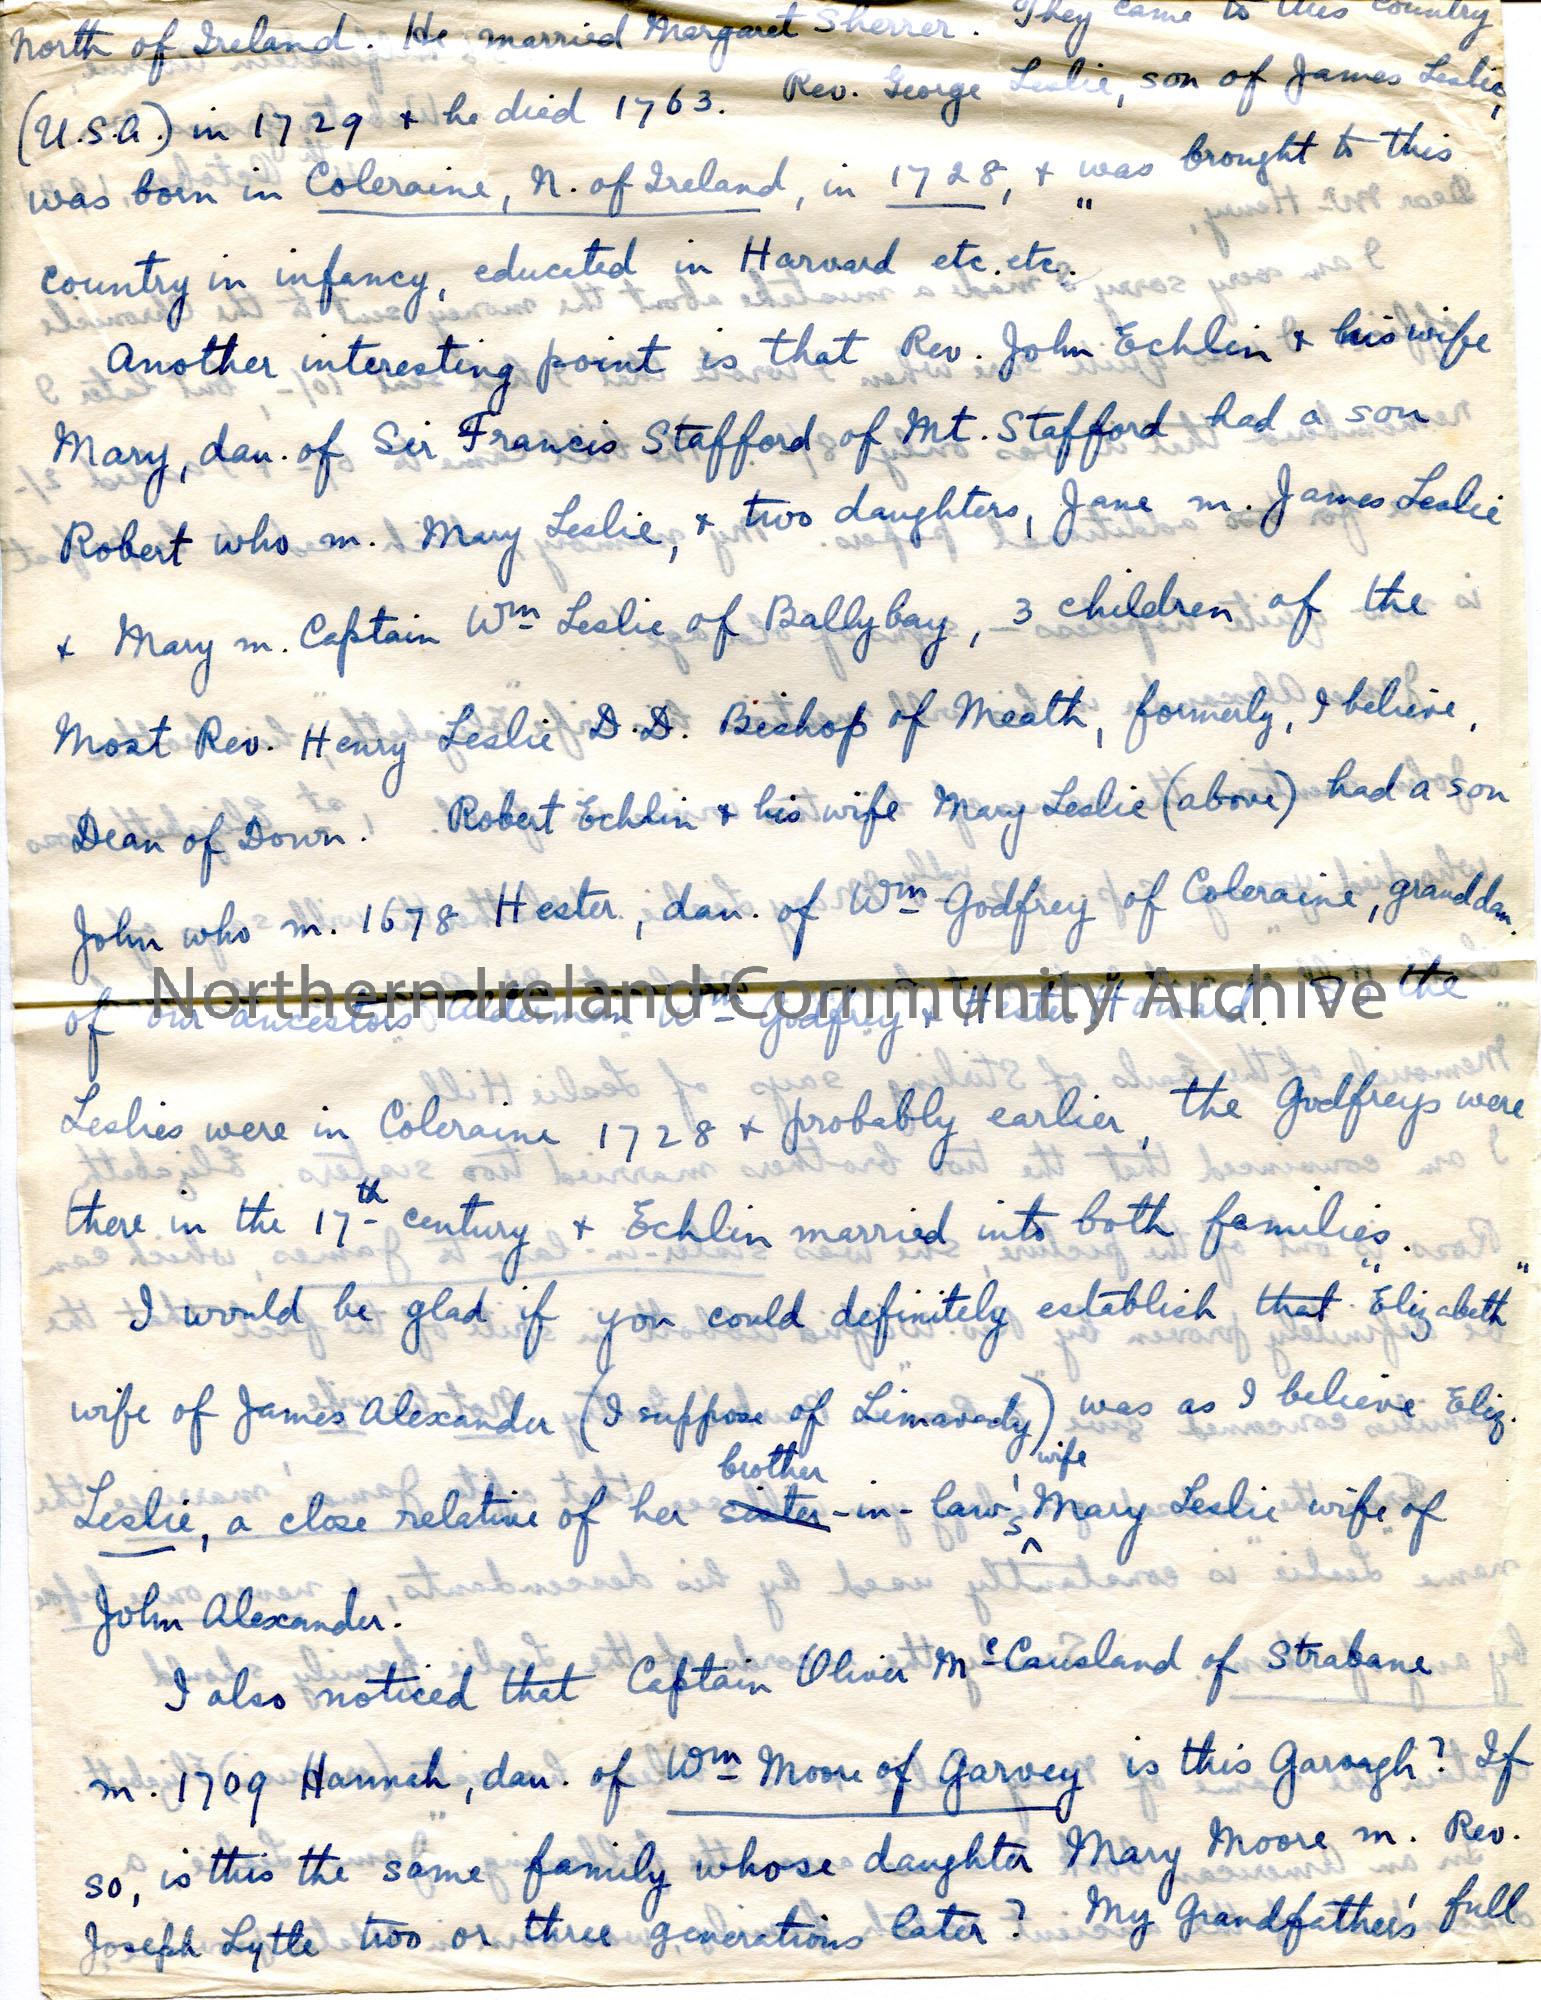 North of Ireland. He married Margaret Sherrer. They came to this country
(U.S.A.) in 1729 & he died 1763. Rev. George Leslie, son of James Leslie,
was born in Coleraine, N. of Ireland, in 1728, & " was brought to this
country in infancy, educated in Harvard etc. etc.
Another interesting point is that Rev. John Echlin & his wife
Mary, dau. of Sir Francis Stafford of Mt. Stafford had a son
Robert who m. Mary Leslie, & two daughters, Jane m. James Leslie
& Mary m. Captain Wm Leslie of Ballybay, 3 children of the
Most Rev. Henry Leslie D.D. Bishop of Meath, formerly, I believe,
Dean of Down. Robert Echlin & his wife Mary Leslie (above) had a son
John who m. 1678 Hester, dau. of Wm Godfrey of Coleraine, granddau.
Northern Ireland Community Archive
of our ancestors Alderman Wm Godfrey & Hester Howard. So the
Leslies were in Coleraine 1728 & probably earlier, the Godfreys were
there in the 17th century & Echlin married into both families.
I would be glad if you could definitely establish that "Elizabeth"
wife of James Alexander (I suppose of Limavady) was as I believe Eliz.
Leslie, a close relative of her sister brother-in-law's wife Mary Leslie wife of
John Alexander.
I also noticed that Captain Oliver McCausland of Strabane
m. 1709 Hannah, dau. of Wm Moore of Garvey is this Garvagh? If
so, is this the same family whose daughter Mary Moore m. Rev.
Joseph Lytle two or three generations later? My Grandfather's full